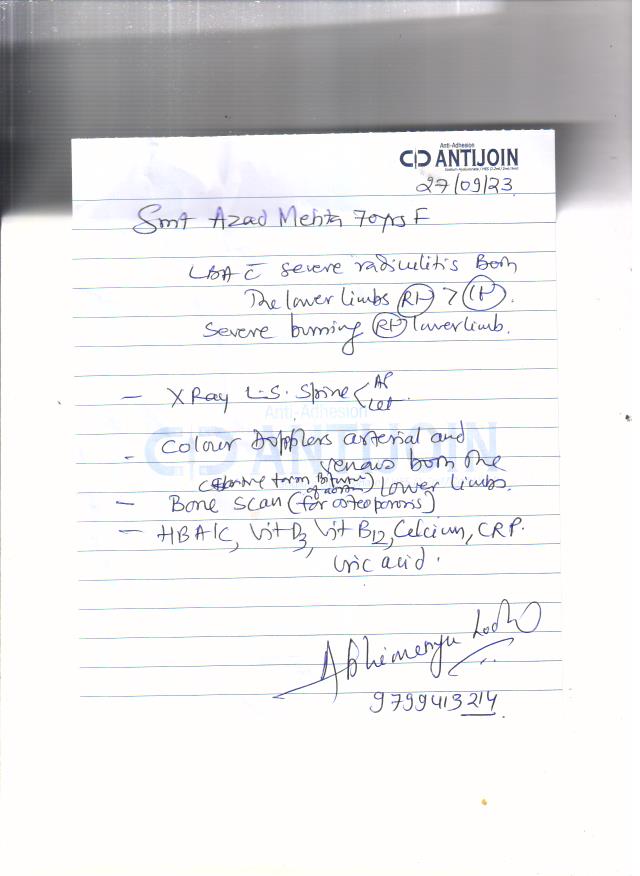 Anti-Adhesion
ANTIJOIN
27/09/23
Smt Azad Mehta 70yrs F
LBA c̄ severe radiculitis Both
The lower limbs Rt > Lt.
Severe burning Rt lower limb.
- X Ray L-S. Spine < AP
Lat
Anti-Adhesion
ANTIJOIN
- Colour Dopplers arterial and
venous both the
of aorta) Lower limbs.
- Bone scan (for osteoporosis)
- HBA1C, Vit D3, Vit B12, Calcium, CRP.
Uric acid.
Abhimanyu
9799413214